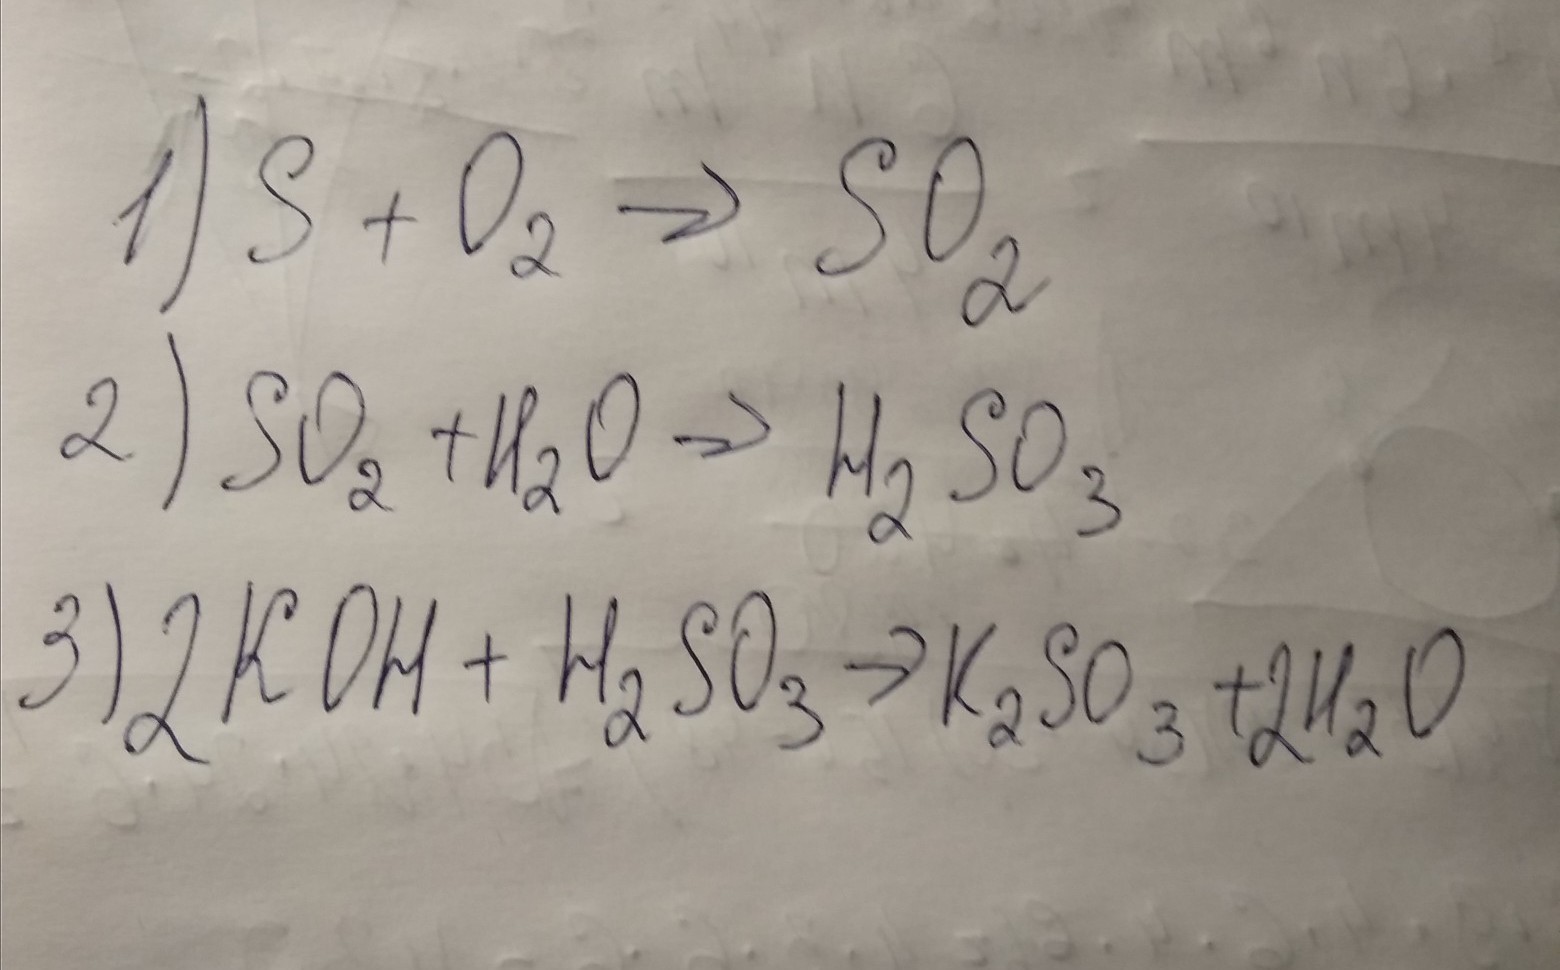 1) S + O₂ → SO₂
2) SO₂ + H₂O → H₂SO₃
3) 2KOH + H₂SO₃ → K₂SO₃ + 2H₂O